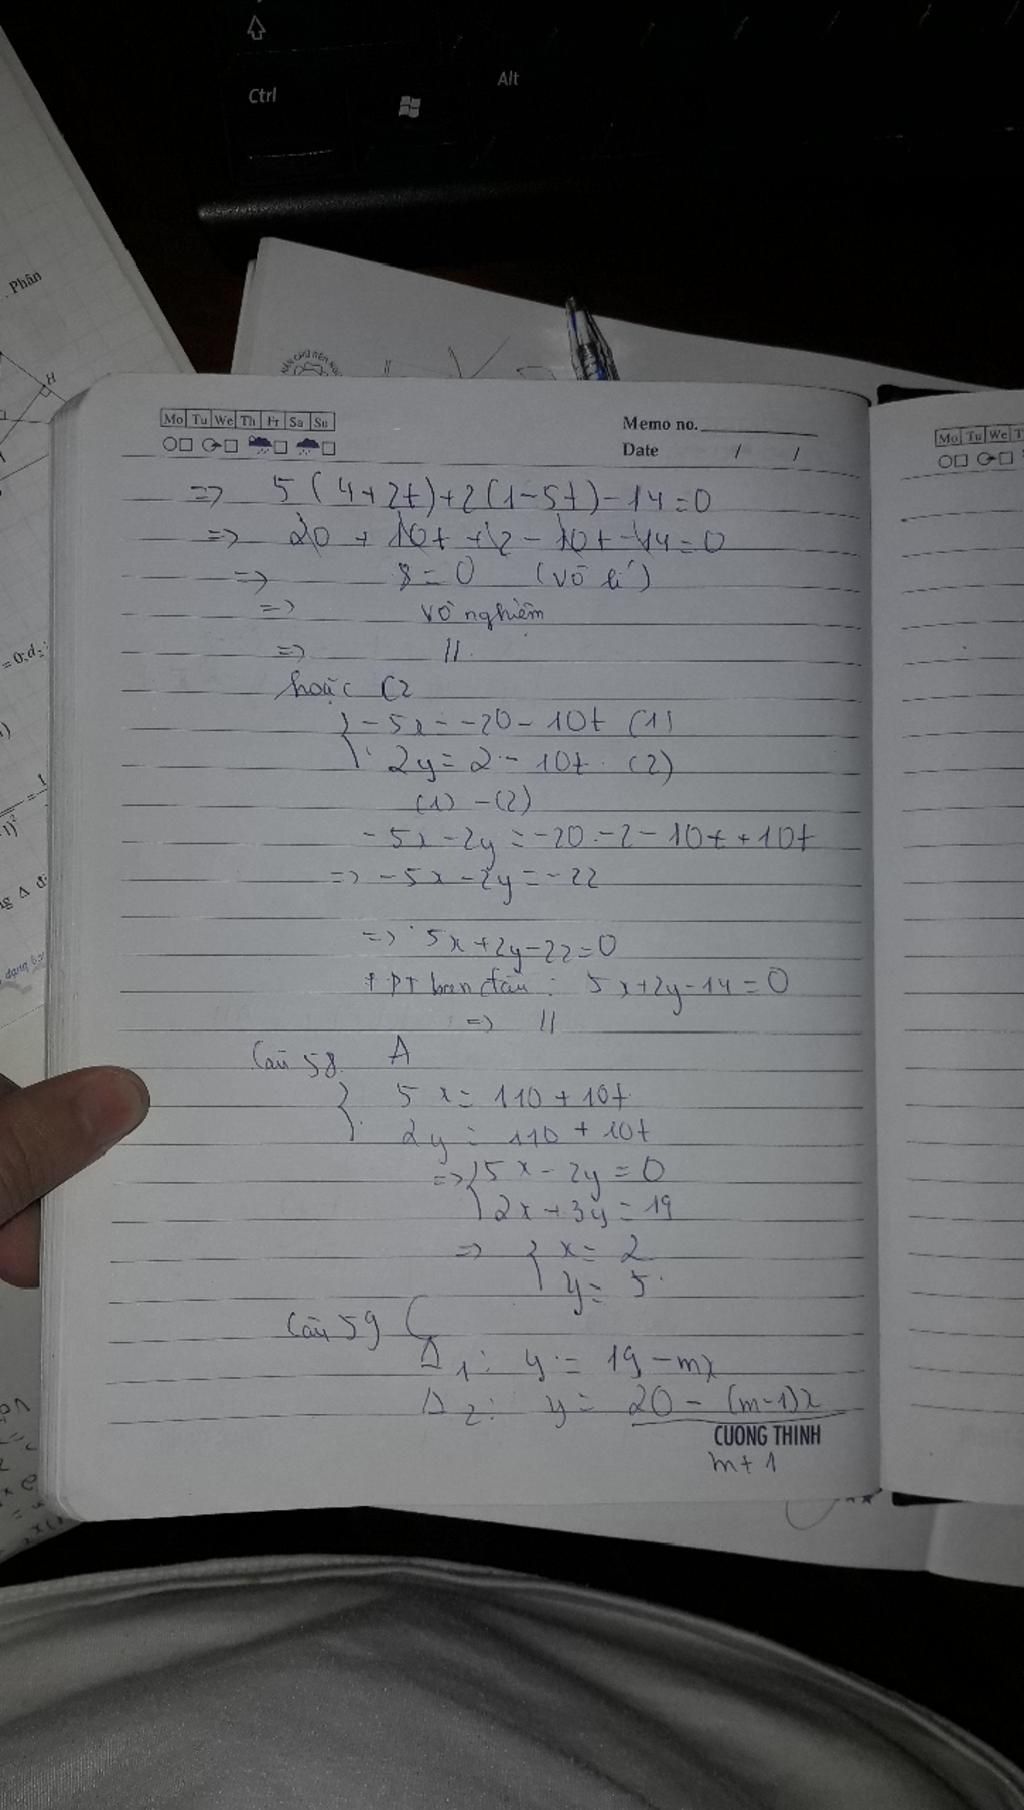 Alt
Ctrl
Phân
H
Mo Tu We Th Fr Sa Su
Memo no.
Date / /
Mo Tu We T
=> 5(4+2t)+2(1-5t)-14=0
=> 20 + 10t + 2 - 10t - 14 = 0
=> 8 = 0 (vô lí)
=> vô nghiệm
=> //
hoặc C2
{ -5x = -20 - 10t (1)
2y = 2 - 10t (2)
(1) - (2)
-5x - 2y = -20 - 2 - 10t + 10t
=> -5x - 2y = -22
=> 5x + 2y - 22 = 0
+ PT ban đầu : 5x + 2y - 14 = 0
=> //
Câu 58 A
{ 5x = 110 + 10t
2y = 110 + 10t
=> { 5x - 2y = 0
2x + 3y = 19
=> { x = 2
y = 5
Câu 59 C
Δ1: y = 19 - mx
Δ2: y = 20 - (m-1)x
CUONG THINH
m + 1